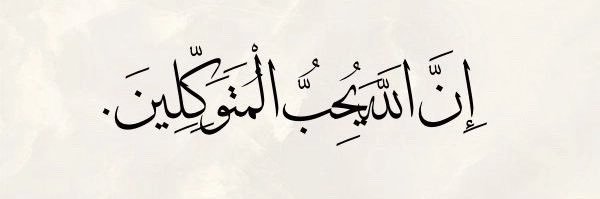 إِنَّ اللَّهَ يُحِبُّ الْمُتَوَكِّلِينَ.